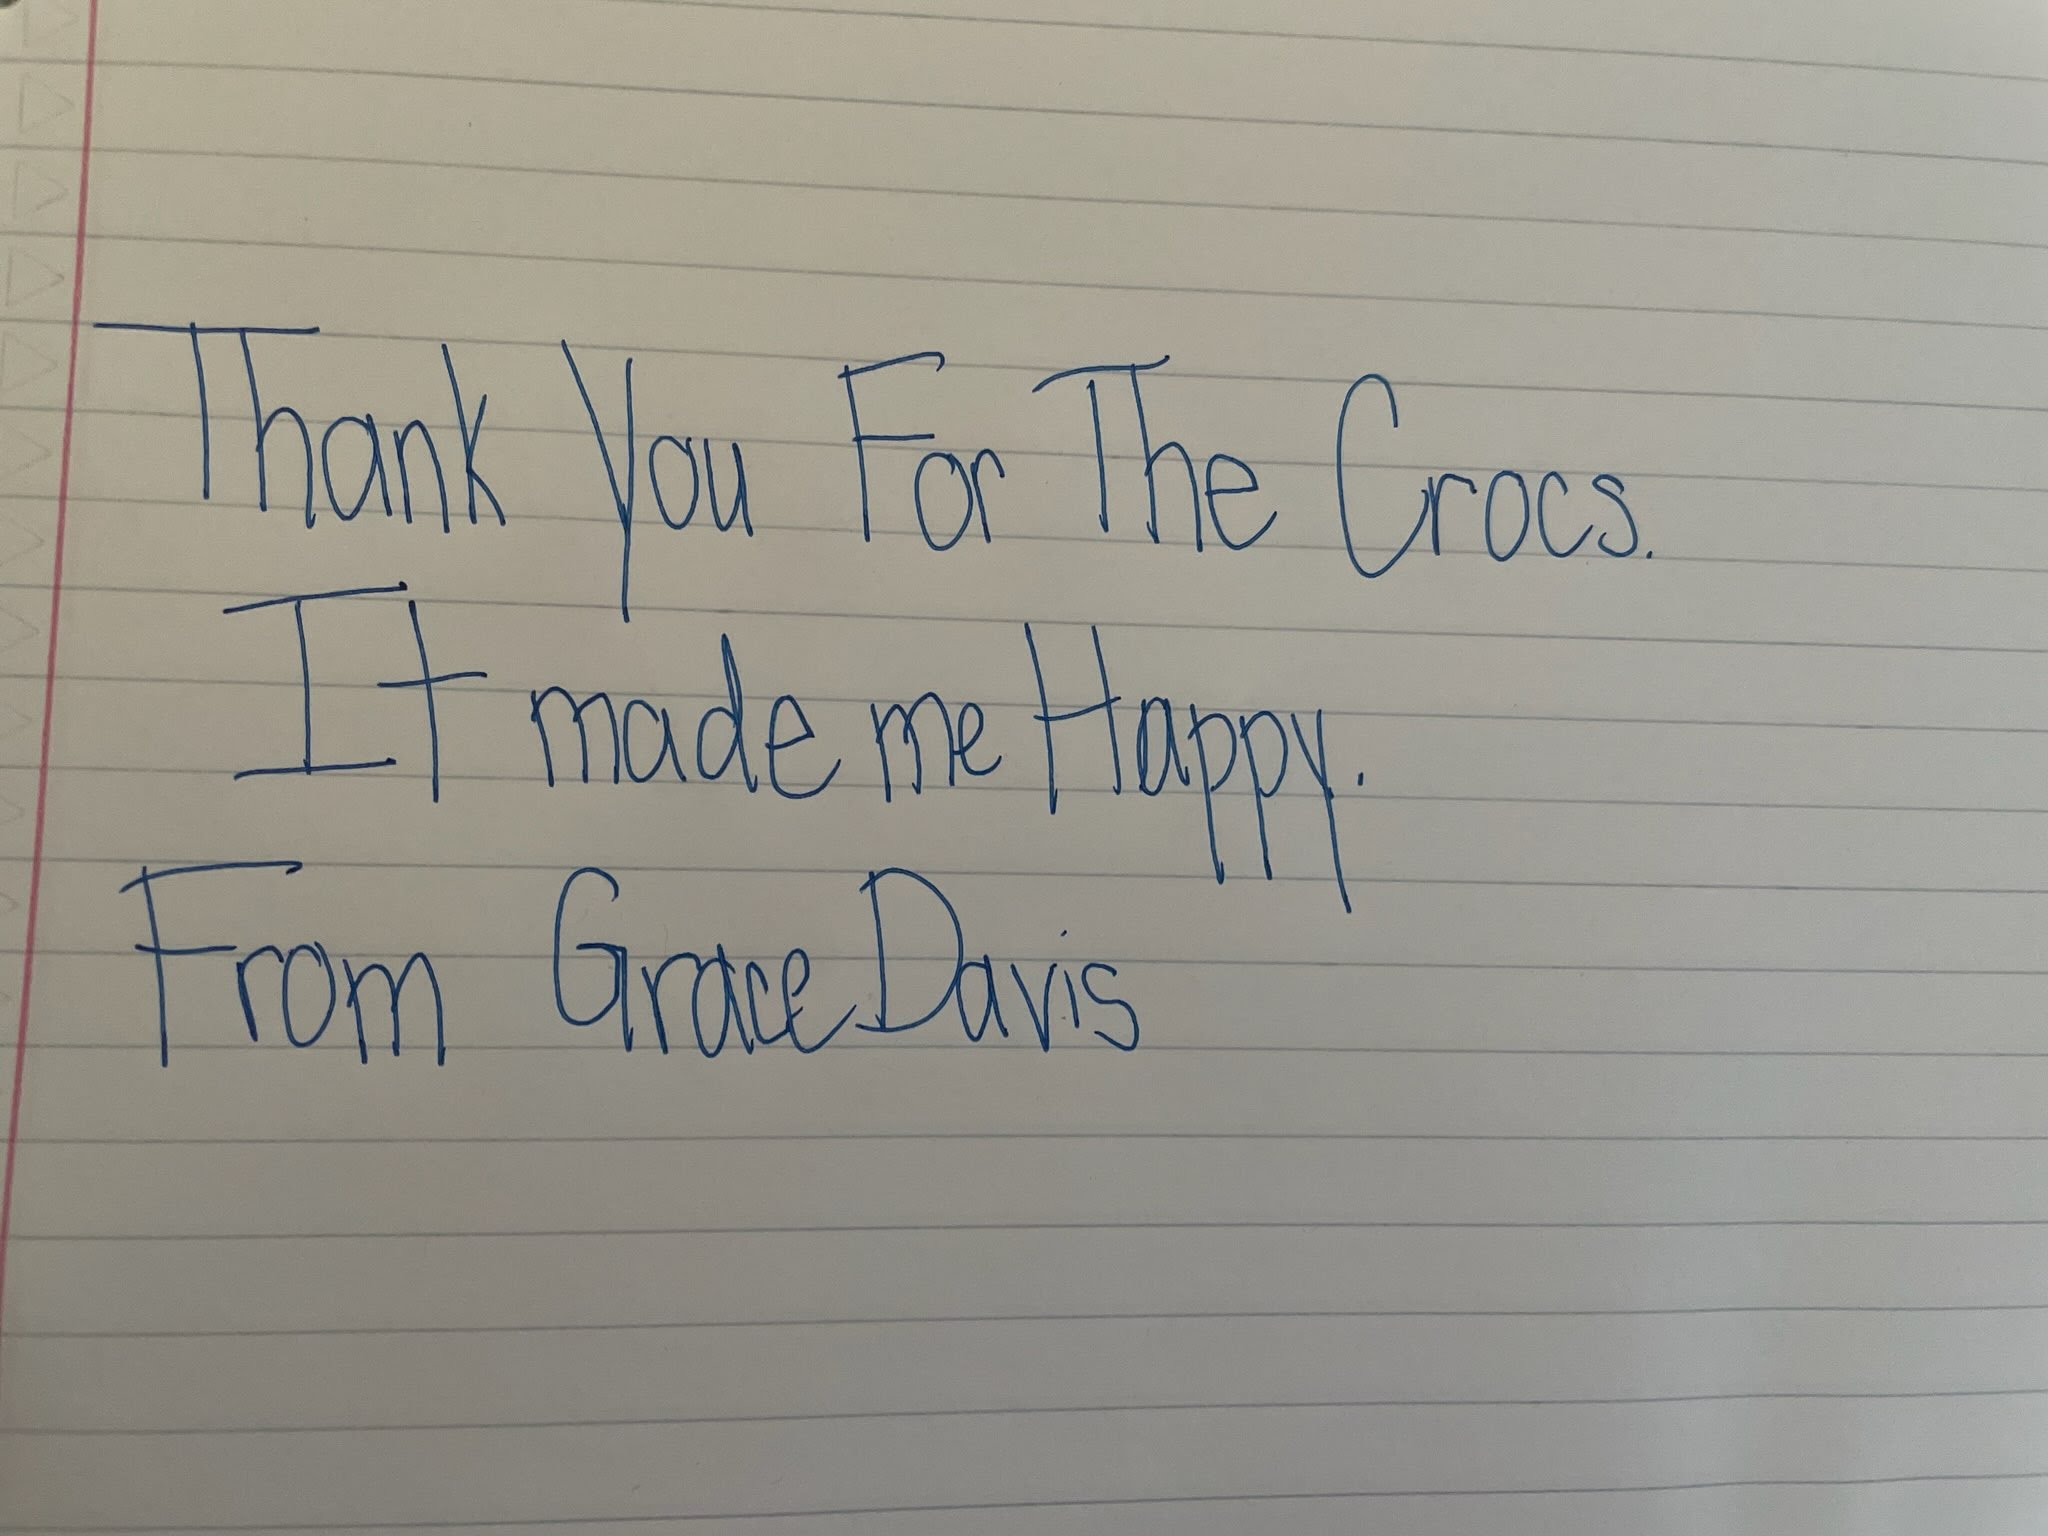 Thank You For The Crocs.
It made me Happy.
From Grace Davis